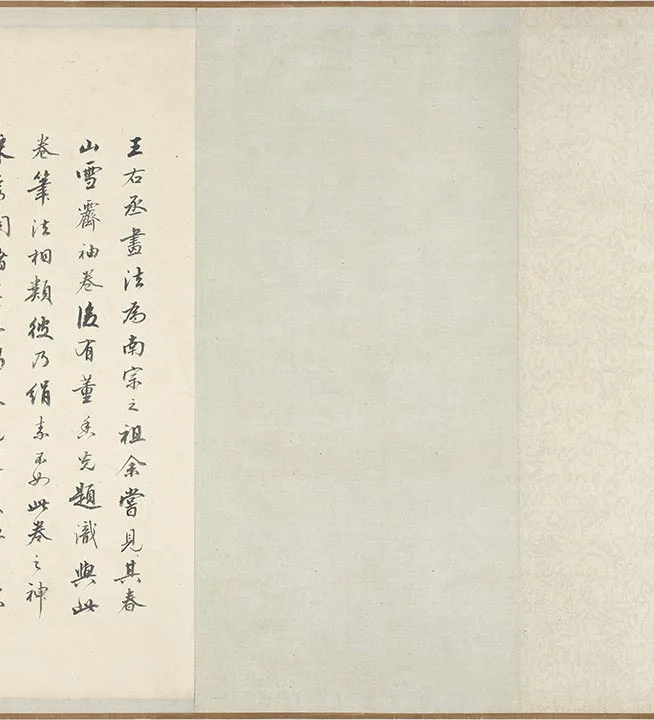 王右丞畫法為南宗之祖余嘗見其春
山雪霽袖卷後有董香光題識與此
卷筆法相類彼乃絹素不如此卷之神